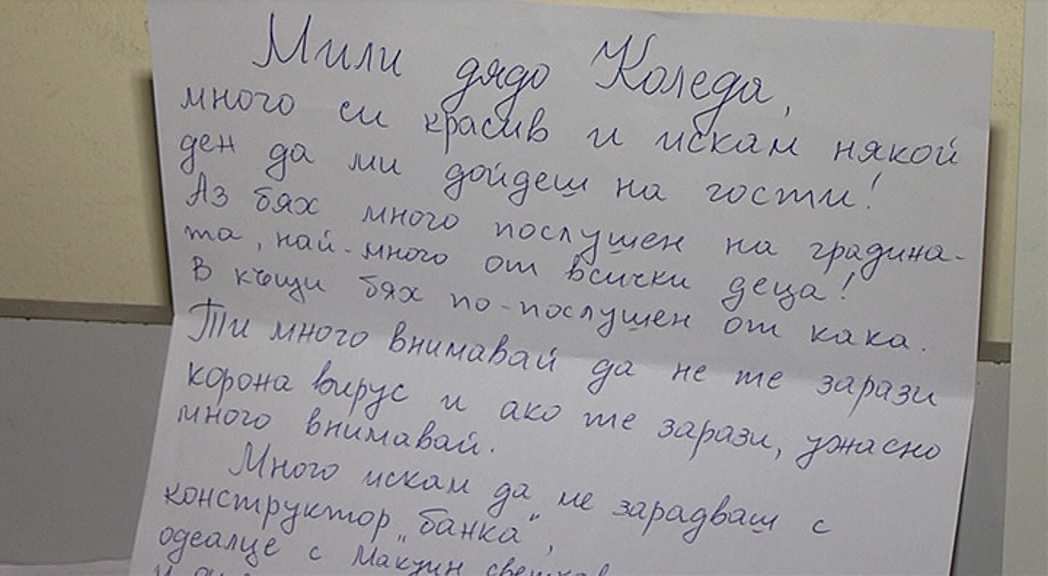 Мили дядо Коледа,
много си красив и искам някой
ден да ми дойдеш на гости!
Аз бях много послушен на градина-
та, най-много от всички деца!
В къщи бях по-послушен от кака.
Ти много внимавай да не те зарази
корона вирус и ако те зарази, ужасно
много внимавай.
Много искам да ме зарадваш с
конструктор „банка",
одеалце с Макуин